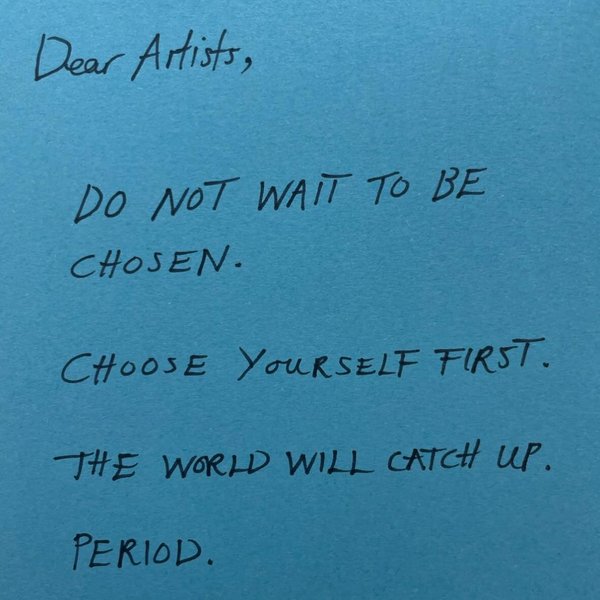 Dear Artists,
DO NOT WAIT TO BE
CHOSEN.
CHOOSE YOURSELF FIRST.
THE WORLD WILL CATCH UP.
PERIOD.